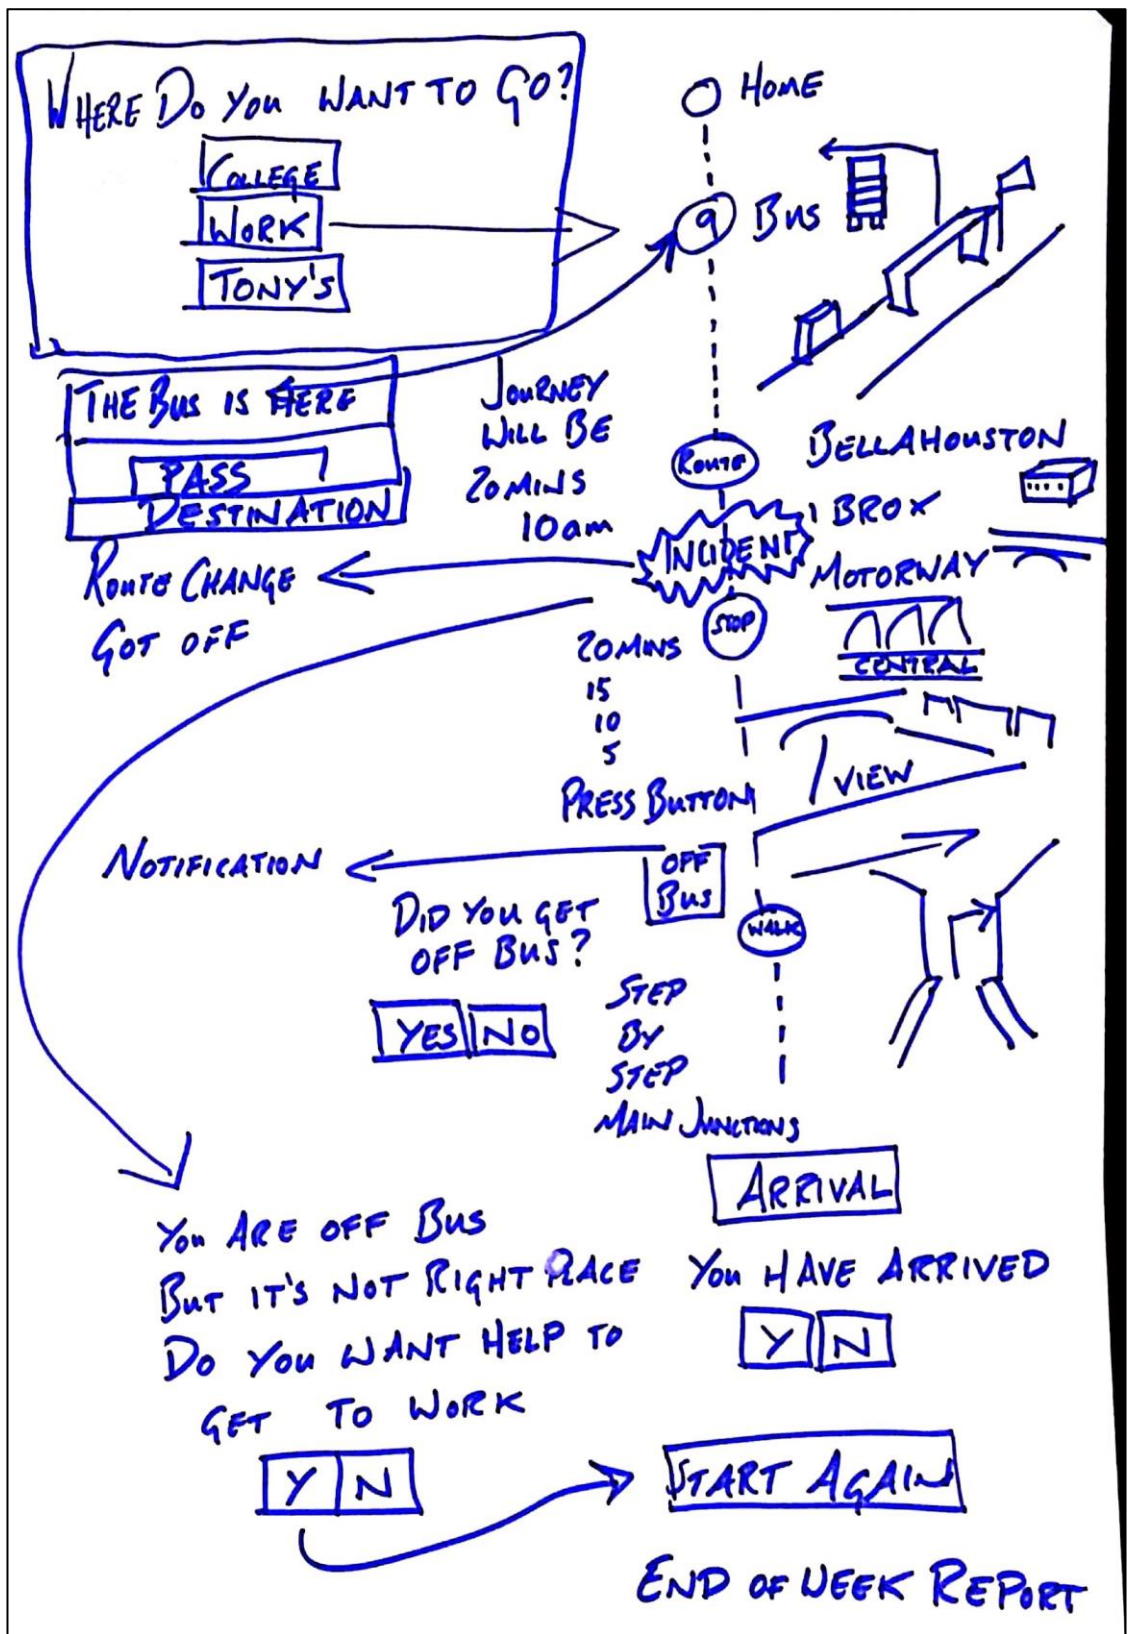 WHERE DO YOU WANT TO GO?
COLLEGE
WORK
TONY'S
HOME
9 BUS
THE BUS IS HERE
PASS
DESTINATION
JOURNEY
WILL BE
20 MINS
10am
ROUTE
BELLAHOUSTON
IBROX
INCIDENT
MOTORWAY
ROUTE CHANGE
GOT OFF
STOP
CENTRAL
20 MINS
15
10
5
PRESS BUTTON
VIEW
NOTIFICATION
OFF
BUS
DID YOU GET
OFF BUS?
YES NO
WALK
STEP
BY
STEP
MAIN JUNCTIONS
ARRIVAL
YOU HAVE ARRIVED
Y N
YOU ARE OFF BUS
BUT IT'S NOT RIGHT PLACE
DO YOU WANT HELP TO
GET TO WORK
Y N
START AGAIN
END OF WEEK REPORT